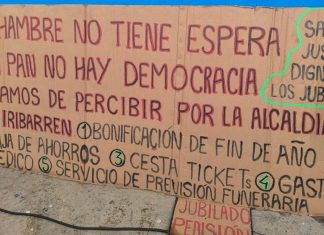 HAMBRE NO TIENE ESPERA
PAN NO HAY DEMOCRACIA
AMOS DE PERCIBIR POR LA ALCALDI
IRIBARREN ① BONIFICACIÓN DE FIN DE AÑO
JA DE AHORROS ③ CESTA TICKETS ④ GAST
EDICO ⑤ SERVICIO DE PREVISIÓN FUNERARIA
SA
JUS
DIGN
LOS JUB
JUBILADO
PENSIÓN